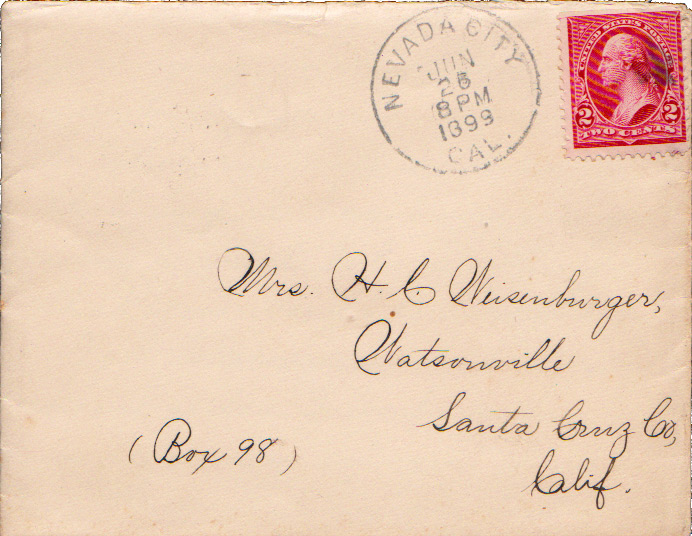 NEVADA CITY
JUN
26
8 PM
1899
CAL.
UNITED STATES POSTAGE
2 2
TWO CENTS
Mrs. H. C. Weisenburger,
Watsonville
Santa Cruz Co,
Calif.
(Box 98)